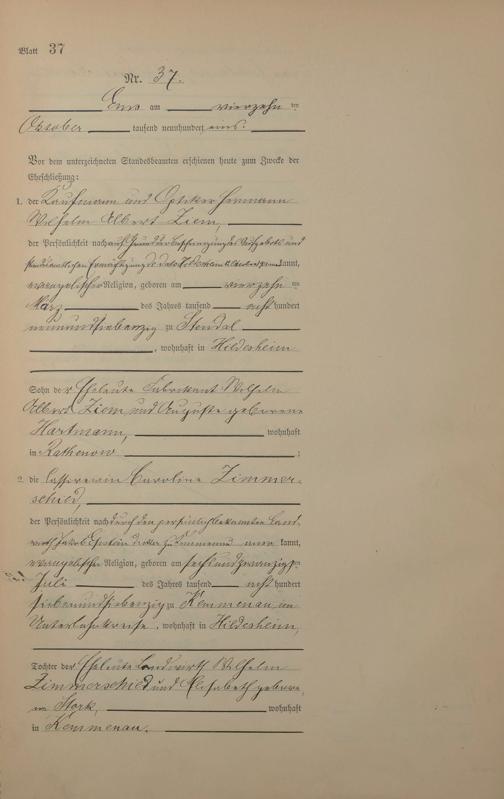 Blatt 37
Nr. 37.
Ems am vierzehn ten
Oktober tausend neunhundert eins.
Vor dem unterzeichneten Standesbeamten erschienen heute zum Zwecke der
Eheschließung:
1. der Kaufmann und Optiker Hermann
Wilhelm Albert Ziem,
der Persönlichkeit nach auf Grund der Bescheinigung des Aufgebots und
standesamtlichen Ermächtigung kannt,
evangelischer Religion, geboren am vierzehn ten
März des Jahres tausend acht hundert
neunundsiebenzig zu Stendal
, wohnhaft in Hildesheim
Sohn der Eheleute Fabrikant Wilhelm
Albert Ziem und Auguste geborene
Hartmann, wohnhaft
in Rathenow ;
2. die Cassirerin Caroline Zimmer-
schied,
der Persönlichkeit nach durch den persönlich bekannten Land-
wirth Jakob Epstein zu Kemmenau aner kannt,
evangelischer Religion, geboren am sechsundzwanzigsten
Juli des Jahres tausend acht hundert
siebenundsiebenzig zu Kemmenau, im
Unterlahnkreise, wohnhaft in Hildesheim,
Tochter der Eheleute Landwirth Wilhelm
Zimmerschied und Elisabeth gebore-
nen Stork, wohnhaft
in Kemmenau.